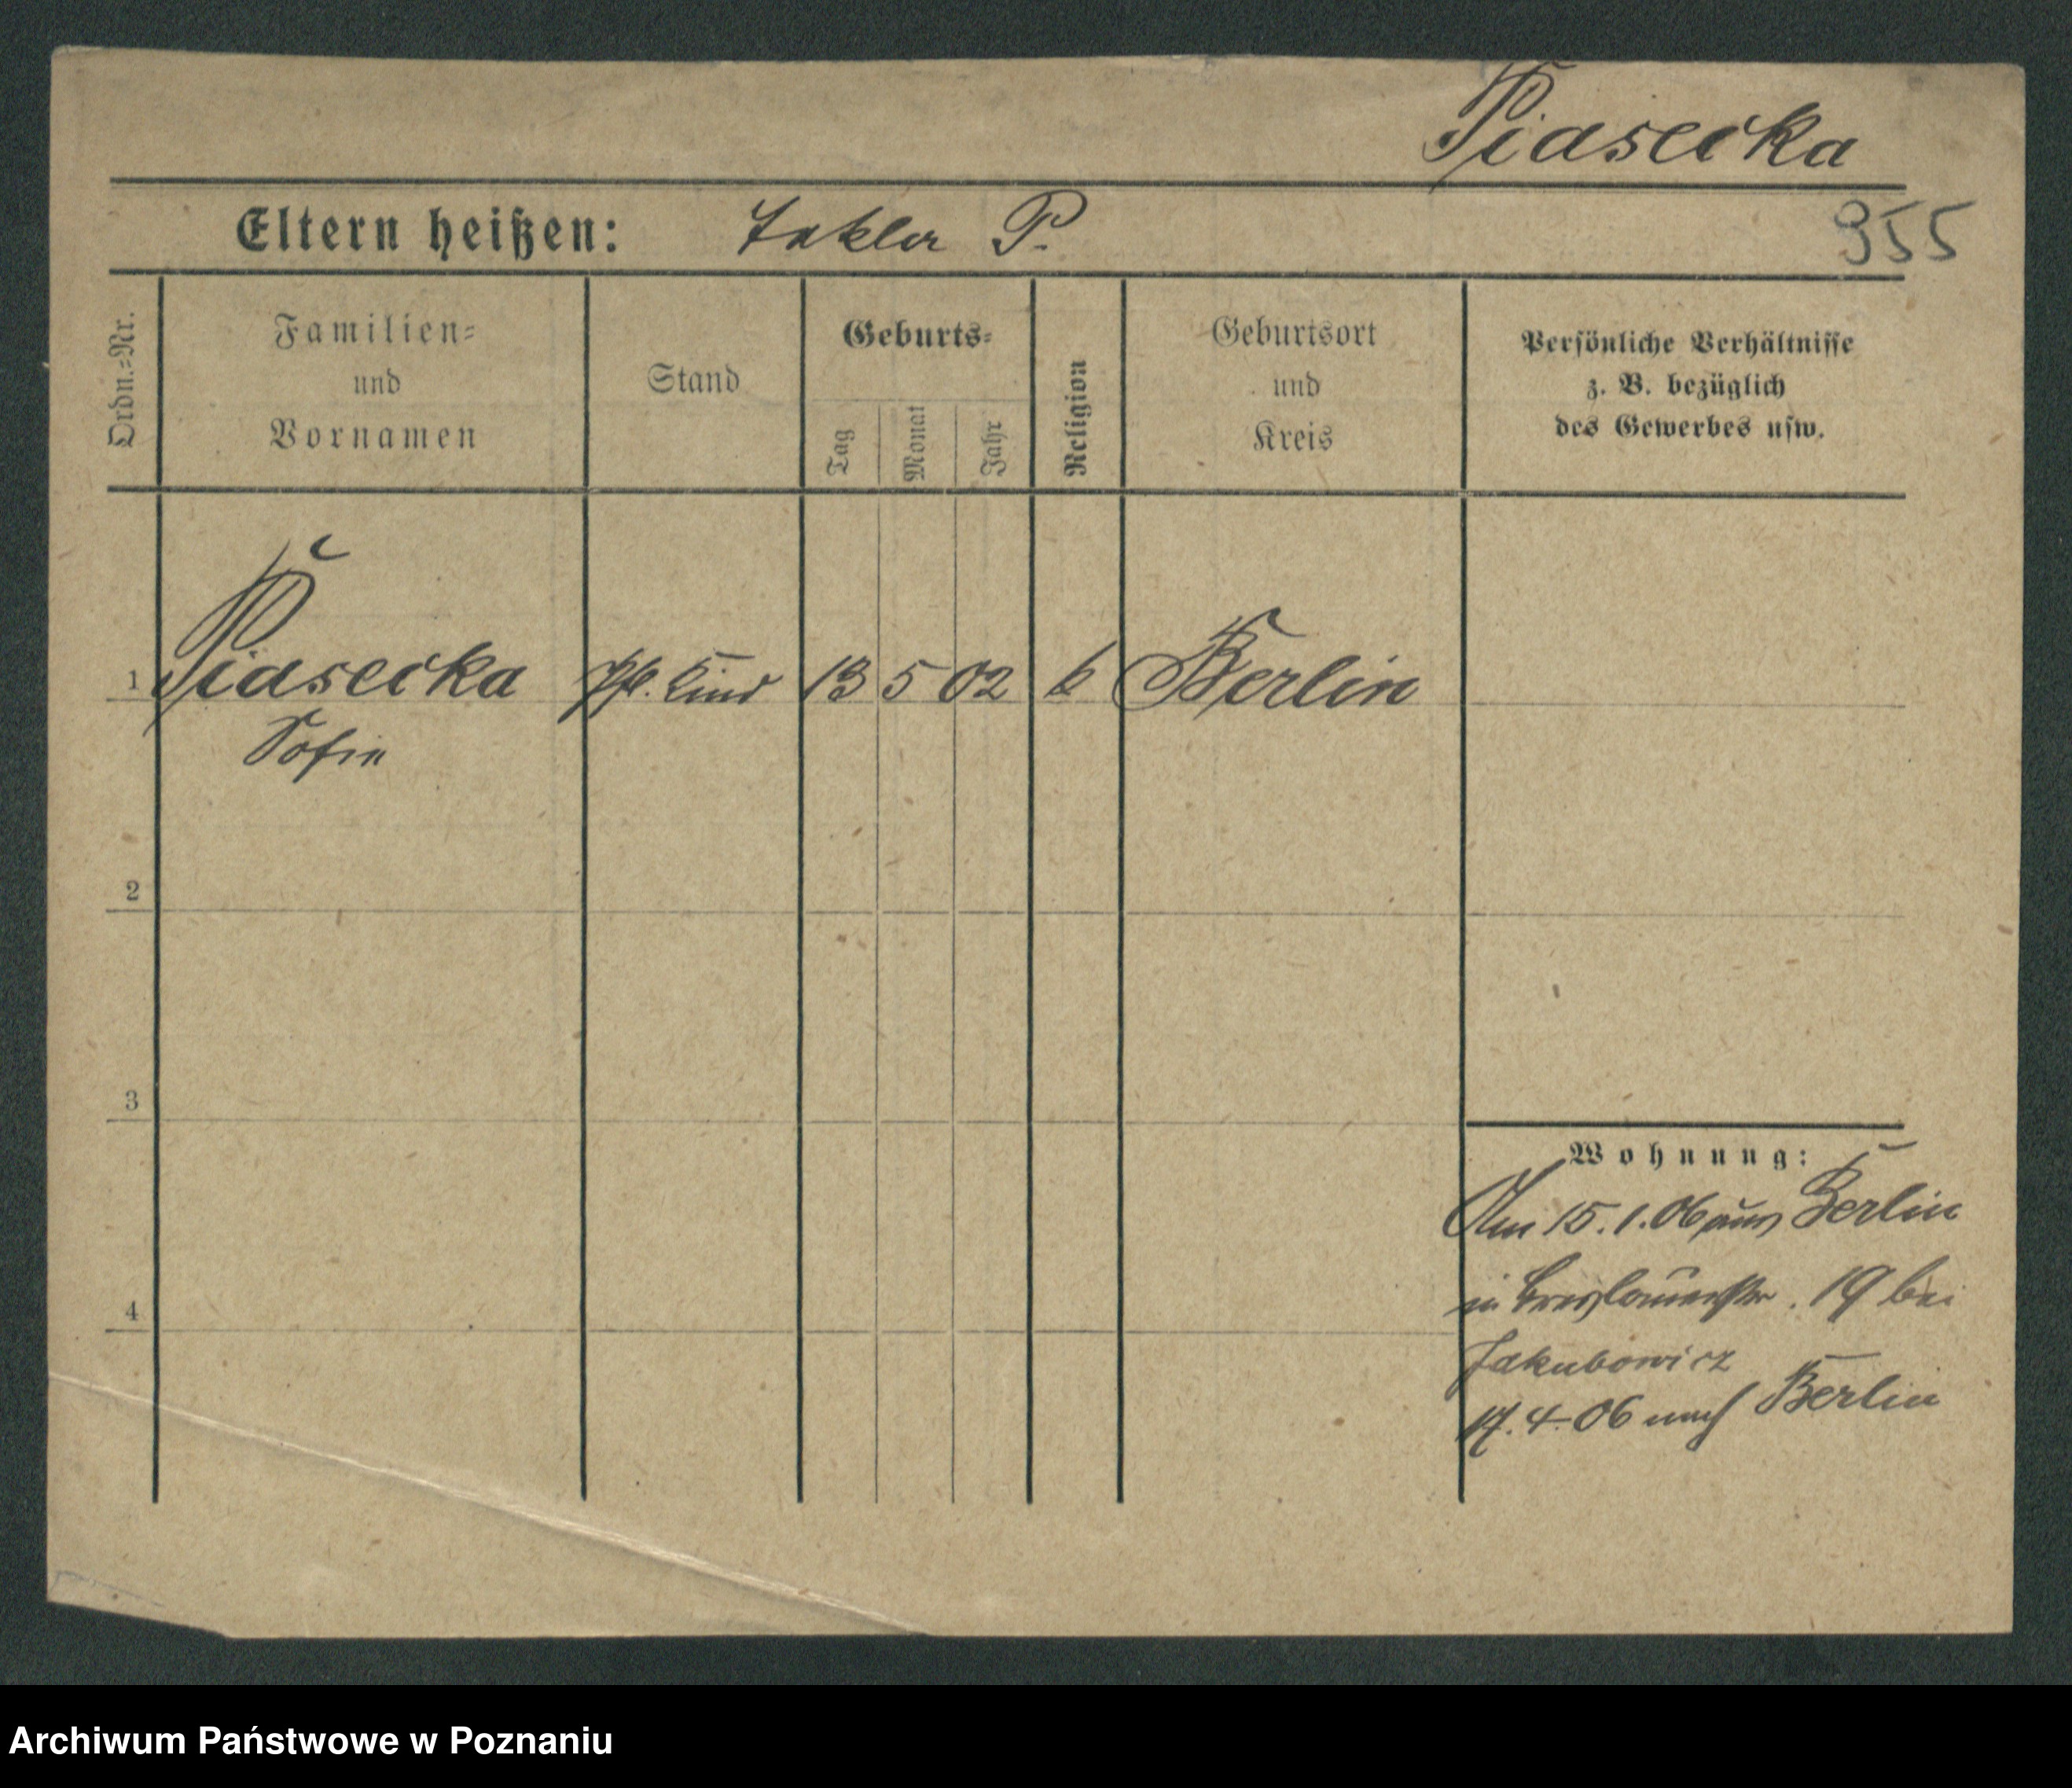 Piasecka
Eltern heißen: Tekla P.
955
Ordn.-Nr.
Familien-
und
Vornamen
Stand
Geburts-
Tag
Monat
Jahr
Religion
Geburtsort
und
Kreis
Persönliche Verhältnisse
z. B. bezüglich
des Gewerbes usw.
1 Piasecka Pfl. Kind 13 5 02 k Berlin
Sofie
2
3
4
Wohnung:
Am 15. 1. 06 aus Berlin
in Breslauerstr. 19 bei
Jakubowicz
17. 4. 06 nach Berlin
Archiwum Państwowe w Poznaniu